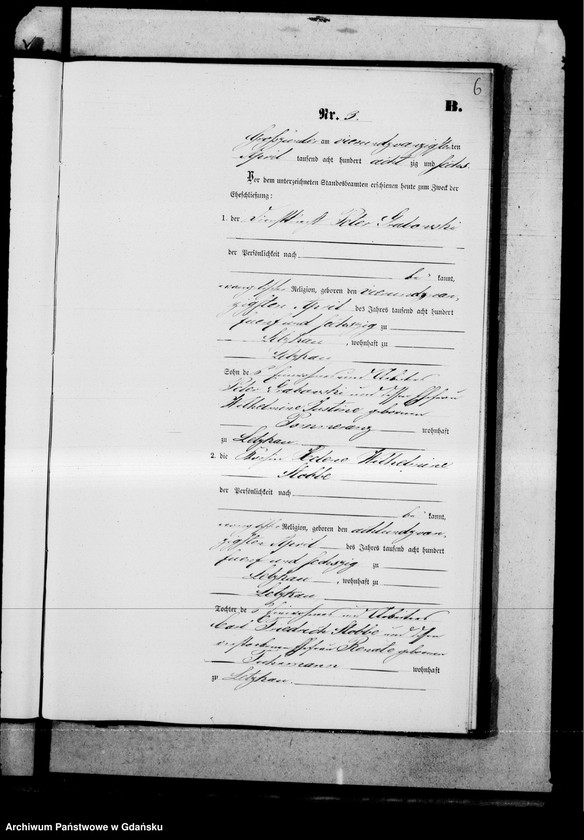 6
B.
Nr. 3.
Großzünder am vierundzwanzigsten ten
April tausend acht hundert acht zig und sechs.
Vor dem unterzeichneten Standesbeamten erschienen heute zum Zweck der
Eheschließung:
1. der Peter Grabowski
der Persönlichkeit nach
be kannt,
evangelischer Religion, geboren den vierundzwan,
zigsten April des Jahres tausend acht hundert
fünf und sechszig zu
Letzkau, wohnhaft zu
Letzkau
Sohn des Einwohners und Arbeiters
Peter Grabowski und dessen Ehefrau
Wilhelmine Justine geborenen
Pommeranz wohnhaft
zu Letzkau
2. die Wilhelmine
Stobbe
der Persönlichkeit nach
be kannt,
evangelischer Religion, geboren den achtundzwan,
zigsten April des Jahres tausend acht hundert
fünf und sechszig zu
Letzkau, wohnhaft zu
Letzkau
Tochter des Einwohners und Arbeiters
Carl Friedrich Stobbe und dessen
verstorbenen Ehefrau Renate geborenen
wohnhaft
zu Letzkau.
Archiwum Państwowe w Gdańsku